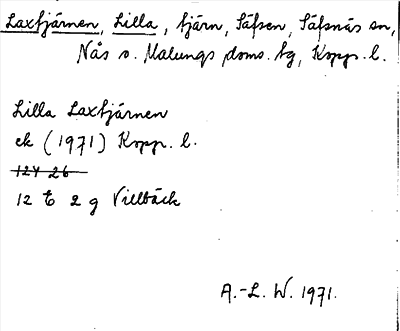 Laxtjärnen, Lilla, tjärn, Säfsen, Säfsnäs sn,
Nås o. Malungs doms. tg, Kopp. l.
Lilla Laxtjärnen
ek (1971) Kopp. l.
12 E 2 g Villbäck
A.-L. W. 1971.